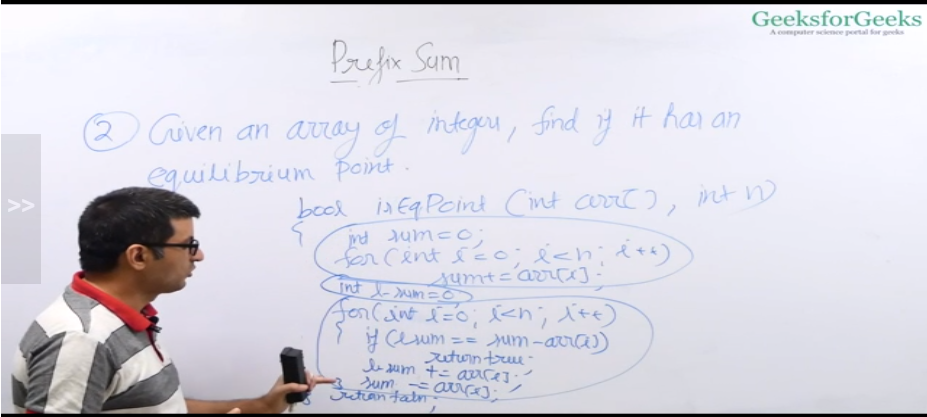 GeeksforGeeks
A computer science portal for geeks
Prefix Sum
② Given an array of integers, find if it has an
equilibrium point.
bool isEqPoint (int arr[], int n)
{ int sum=0;
for(int i=0; i<n; i++)
sum+=arr[i];
int l-sum=0;
for(int i=0; i<n; i++)
{ if (lsum == sum-arr[i])
return true;
l-sum += arr[i];
} sum -= arr[i];
return false;
>>